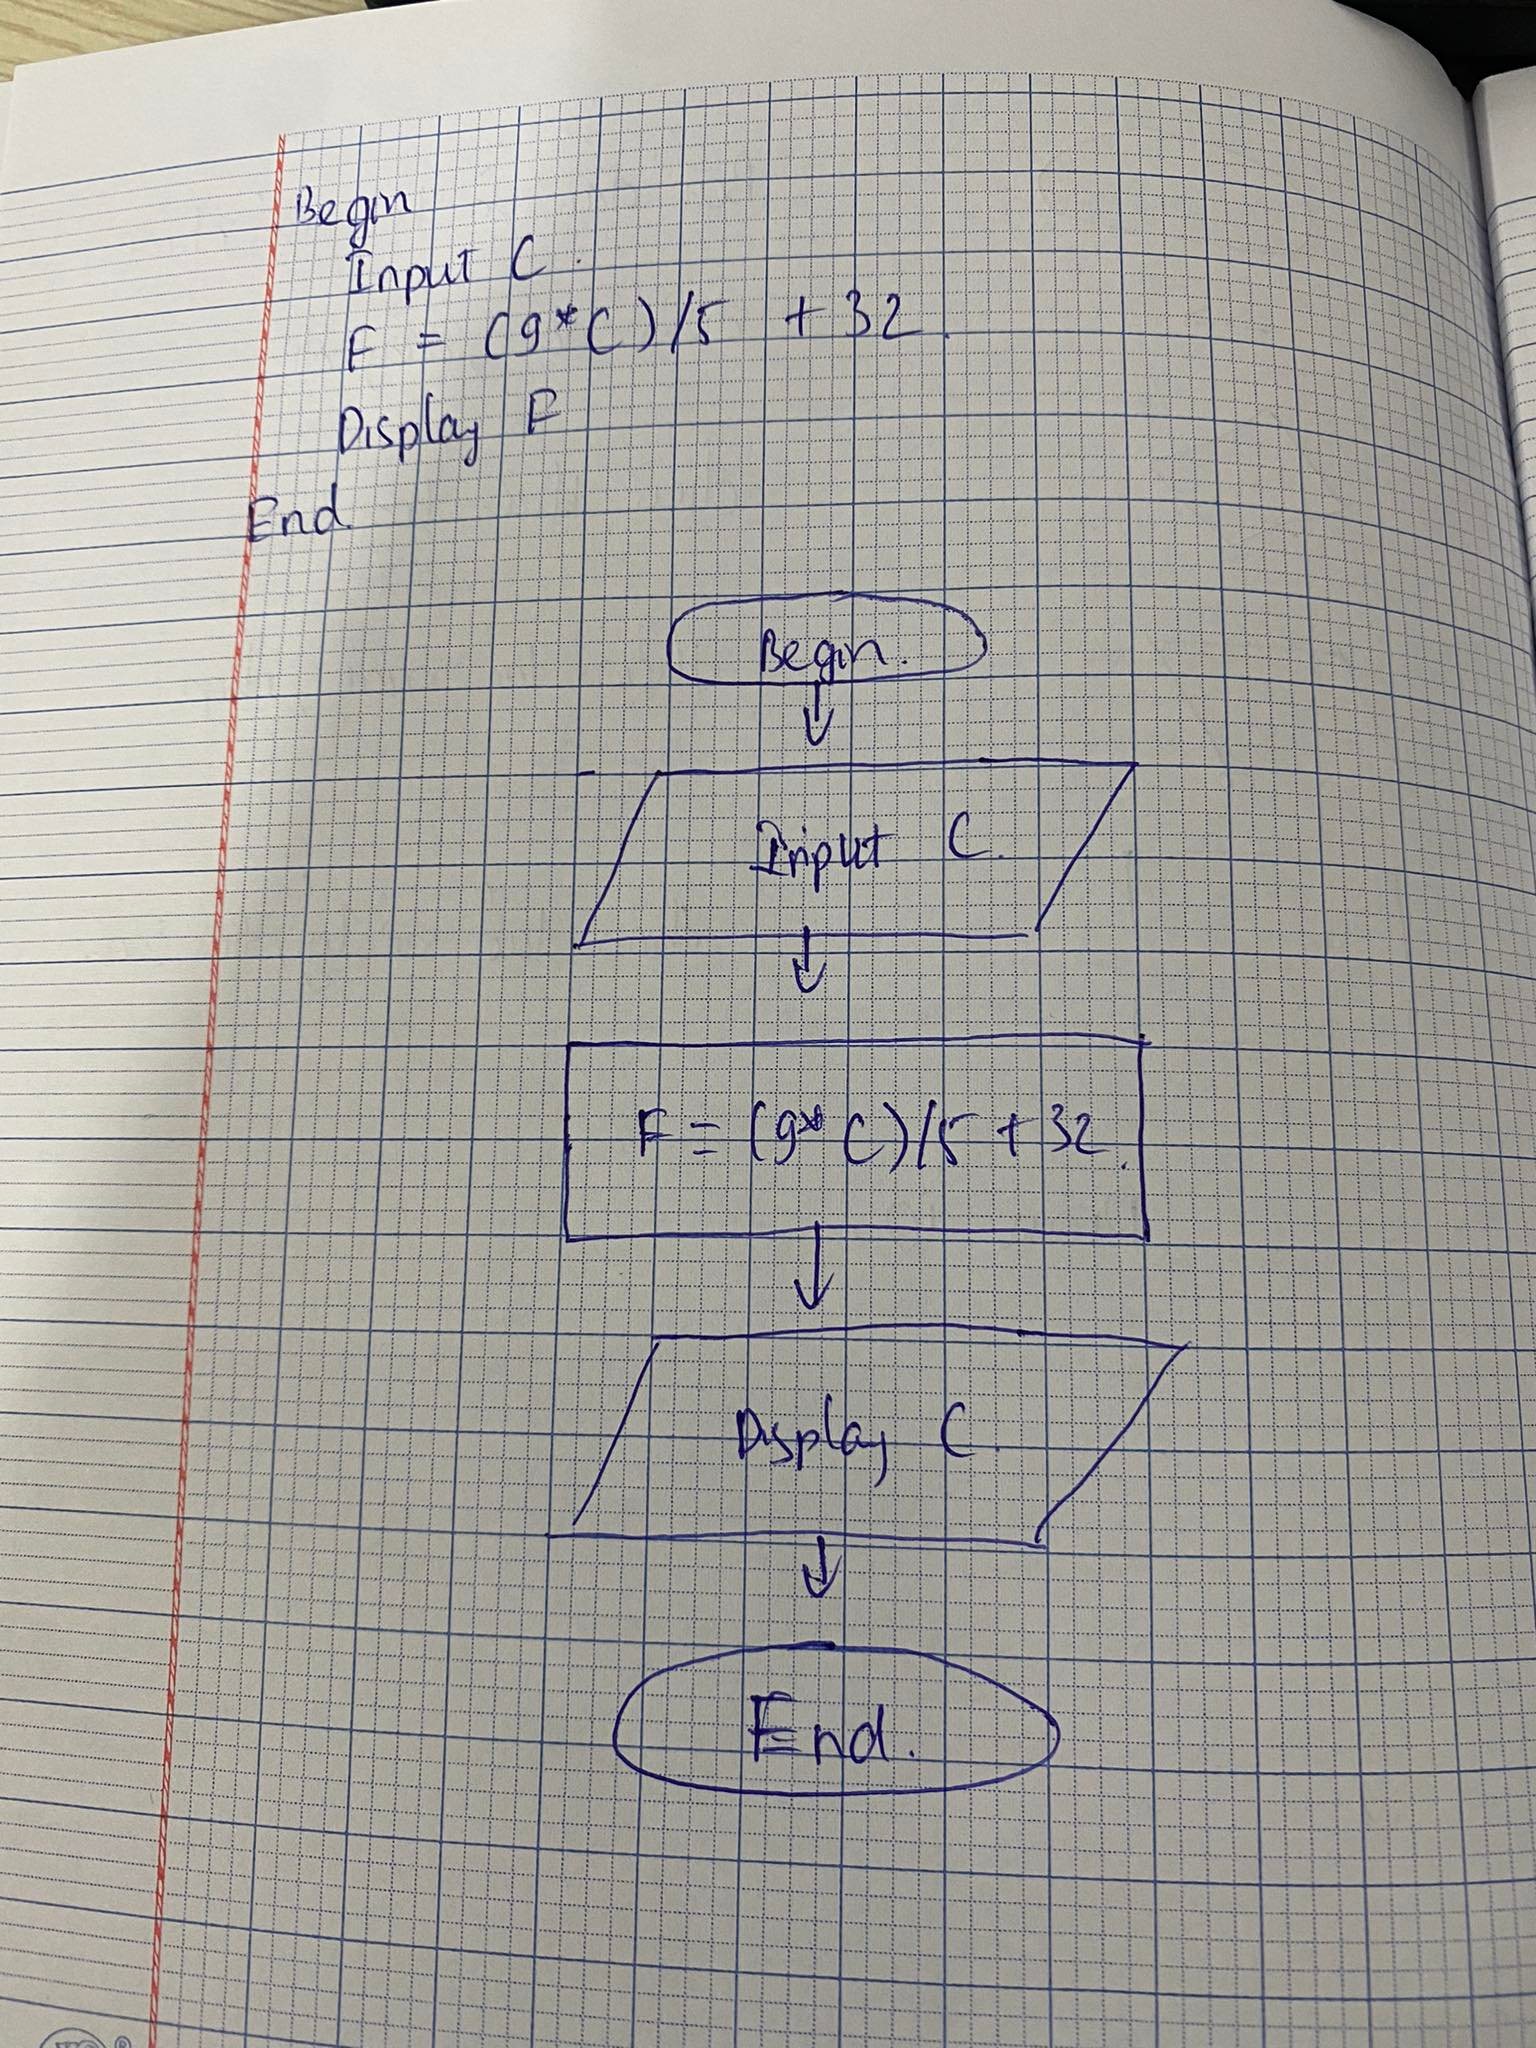 Begin
Input C.
F = (9*C)/5 + 32.
Display F
End
Begin.
Input C.
F = (9* C)/5 + 32.
Display C.
End.